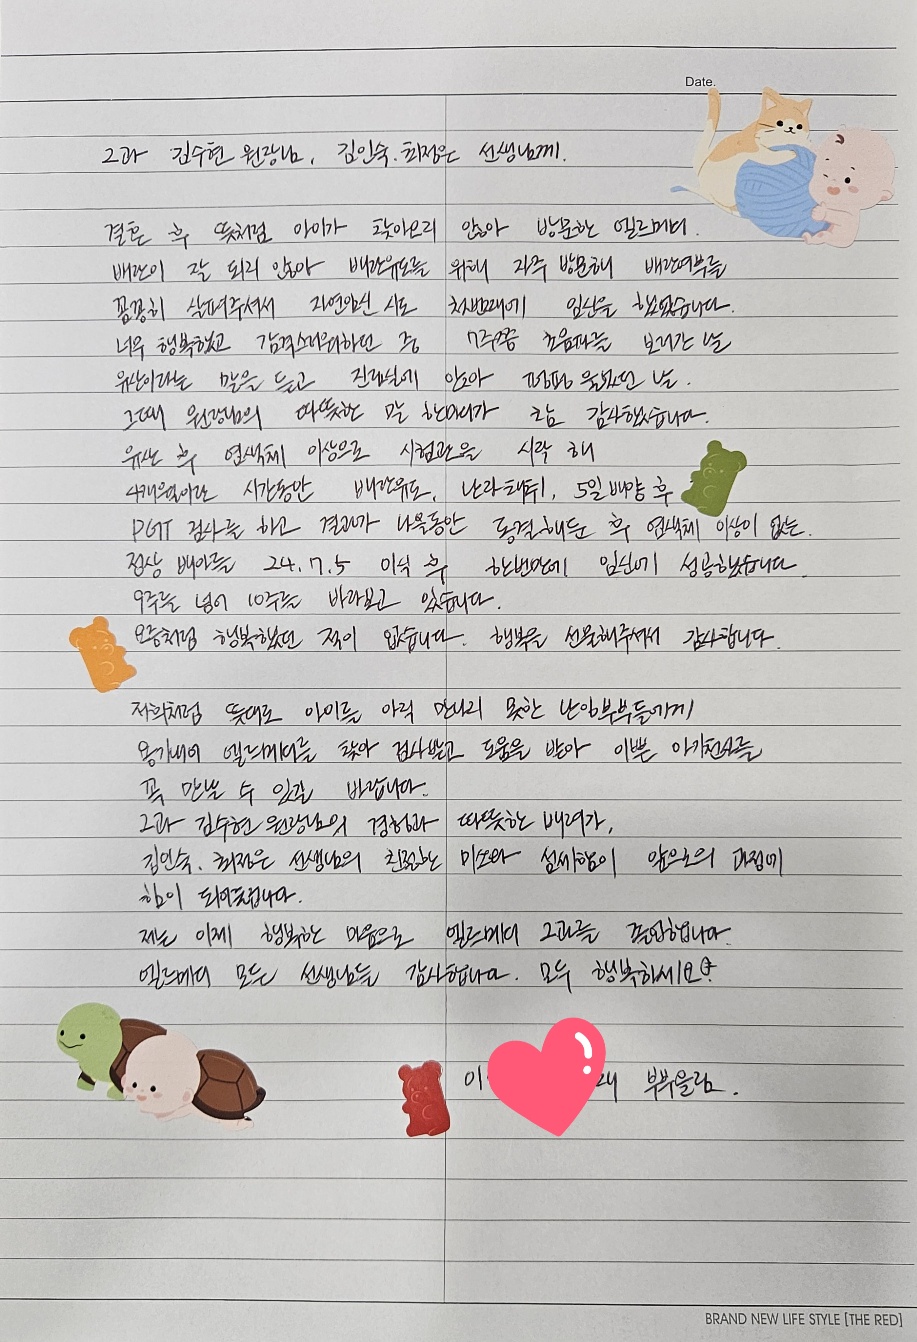 Date.
2과 김수현 원장님, 김인숙.최정은 선생님께.
결혼 후 뜻처럼 아이가 찾아오지 않아 방문한 엘르메디.
배란이 잘 되지 않아 배란유도를 위해 자주 방문해 배란여부를
꼼꼼히 살펴주셔서 자연임신 시도 첫번째에 임신을 했었습니다.
너무 행복했고 감격스러워하던 중 7주쯤 초음파를 보러간 날
유산이라는 말을 듣고 진료실에 앉아 펑펑 울었던 날.
그때 원장님의 따뜻한 말 한마디가 그날 감사했습니다.
유산 후 염색체 이상으로 시험관을 시작 해
4개월이란 시간동안 배란유도, 난자채취, 5일 배양 후
PGT 검사를 하고 결과가 나올동안 동결해둔 후 염색체 이상이 없는
정상 배아를 24.7.5 이식 후 한번만에 임신에 성공했습니다.
9주를 넘어 10주를 바라보고 있습니다.
요즘처럼 행복했던 적이 없습니다. 행복을 선물해주셔서 감사합니다.
저희처럼 뜻대로 아이를 아직 만나지 못한 난임부부들에게
용기내어 엘르메디를 찾아 검사받고 도움을 받아 이쁜 아기천사를
꼭 만날 수 있길 바랍니다.
2과 김수현 원장님의 경험과 따뜻한 배려가,
김인숙. 최정은 선생님의 친절한 미소와 섬세함이 앞으로의 과정에
힘이 되어드립니다.
저는 이제 행복한 마음으로 엘르메디 2과를 졸업합니다.
엘르메디 모든 선생님들 감사합니다. 모두 행복하세요
이 부부올림.
BRAND NEW LIFE STYLE [THE RED]